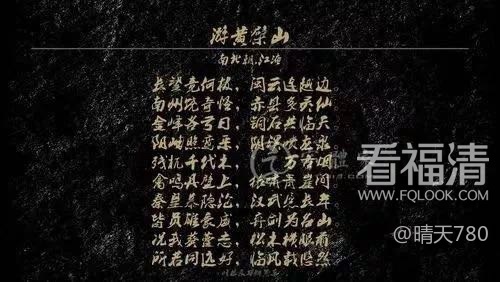 游黄檗山
南北朝.江淹
长望竟何极，闽云连越边。
南州饶奇怪，赤县多灵仙。
金峰各亏日，铜石共临天
阳岫照鸾采，阴溪喷龙泉。
残杌千代木，万古烟
禽鸣丹壁上，猿啸青崖间
秦皇慕隐沦，汉武愿长年
皆负雄豪威，弃剑为名山。
况我葵藿志，松木横眼前
所若同远好，临风载悠然
看福清
WWW.FQLOOK.COM
@晴天780